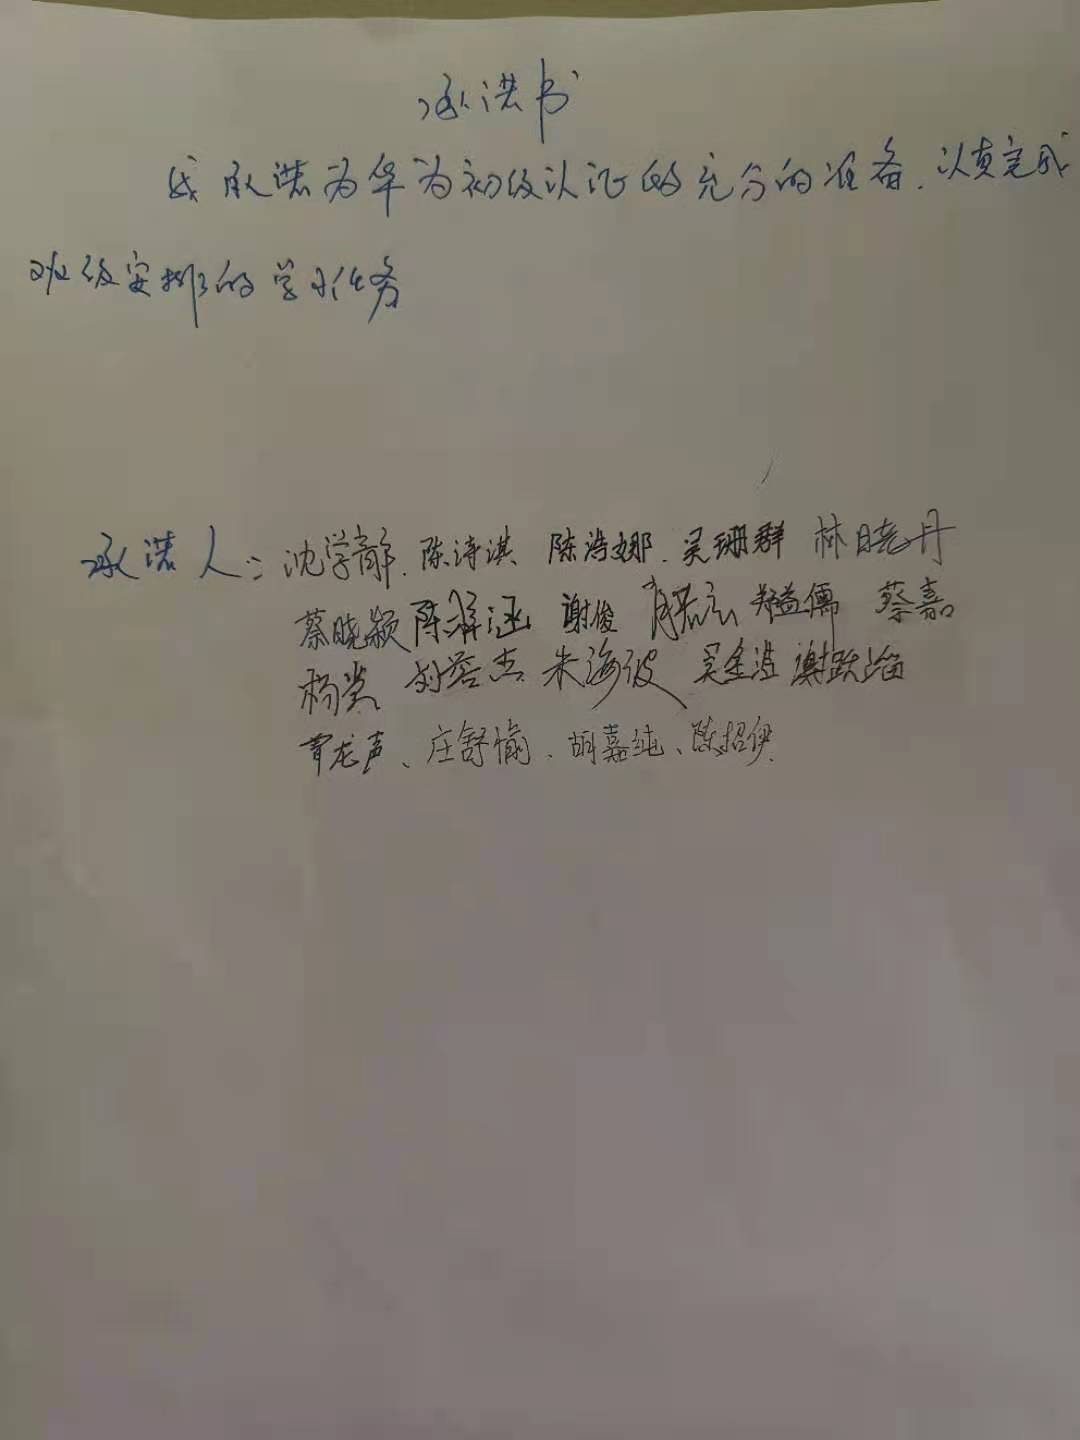 承诺书
我承诺为华为初级认证的充分的准备，认真完成
班级安排的学习任务
承诺人：沈学静、陈诗淇 陈浩娜、吴珊群 林晓丹
蔡晓颖 陈泽涵 谢俊 郑益儒 蔡嘉
杨 朱海波 谢跃
曹龙声、庄舒愉、胡嘉纯、陈招伊